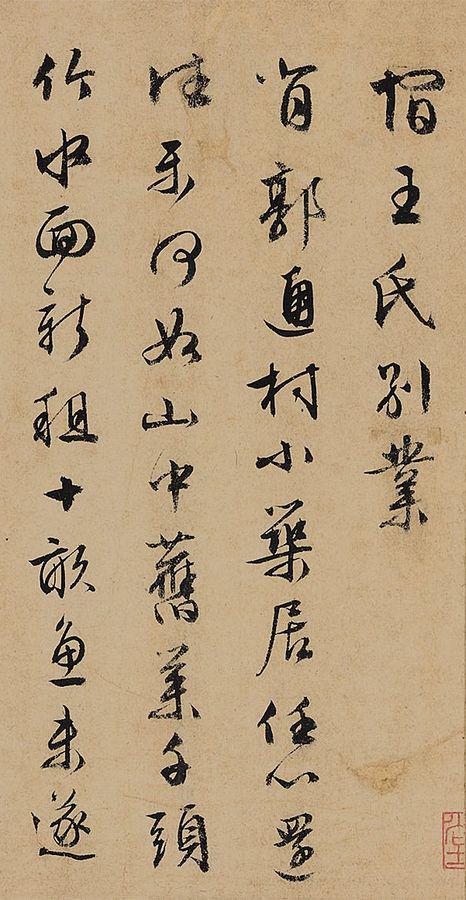 宿王氏別業
背郭通村小築居任心還
往樂何如山中舊業千頭
竹水面新租十畝魚未遂